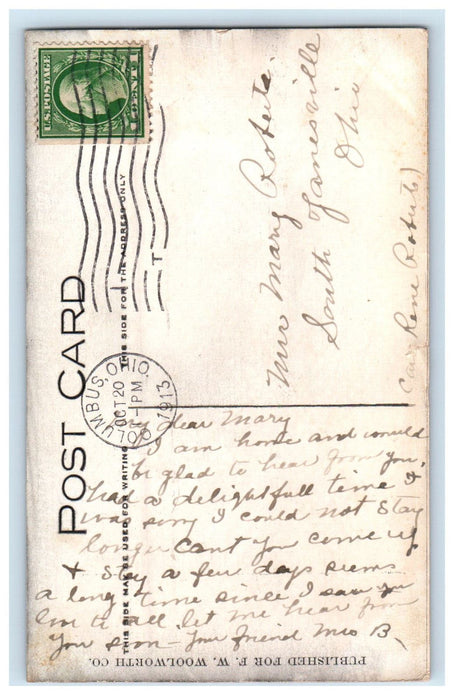 U.S. POSTAGE
1 CENT 1
COLUMBUS, OHIO.
OCT 20
-1 PM
1913
T
POST CARD
THIS SIDE MAY BE USED FOR WRITING
THIS SIDE FOR THE ADDRESS ONLY
Miss Mary Roberts.
South Zanesville
Ohio
(Care Rene Roberts)
My dear Mary
I am home and would
be glad to hear from you.
had a delightfull time &
was sorry I could not stay
longer cant you come up
& stay a few days seems
a long time since I saw you
love to all let me hear from
you soon - Your friend Mrs B.
PUBLISHED FOR F. W. WOOLWORTH CO.